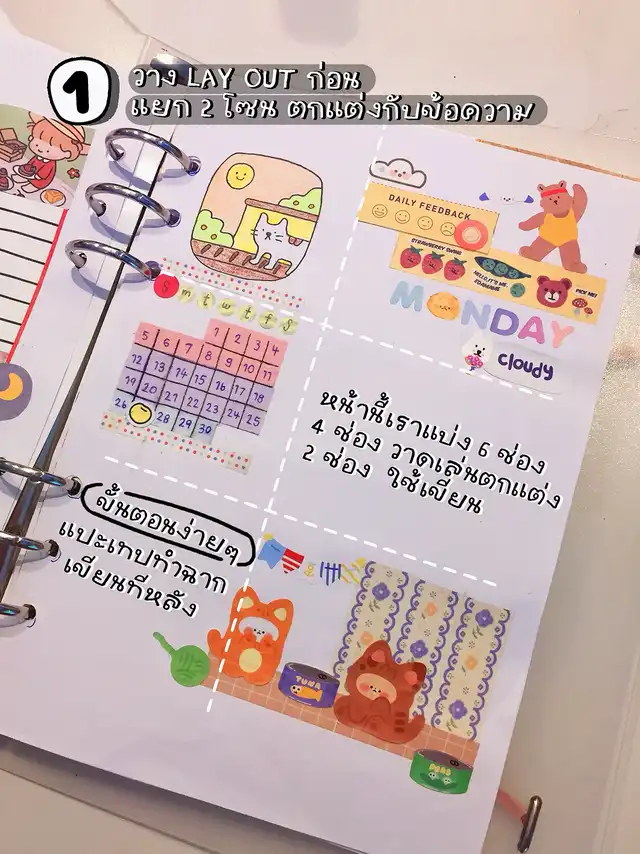 1
วาง LAY OUT ก่อน
แยก 2 โซน ตกแต่งกับข้อความ
DAILY FEEDBACK
STRAWBERRY SWING
HELLO, IT'S ME.
PICK ME!
MONDAY
cloudy
S m t w t f S
1 2 3 4
5 6 7 8 9 10 11
12 13 14 15 16 17 18
19 20 21 22 23 24 25
26 28 29 30
หน้านี้เราแบ่ง 6 ช่อง
4 ช่อง วาดเล่นตกแต่ง
2 ช่อง ใช้เขียน
ขั้นตอนง่ายๆ
แปะเทปทำฉาก
เขียนทีหลัง
TUNA